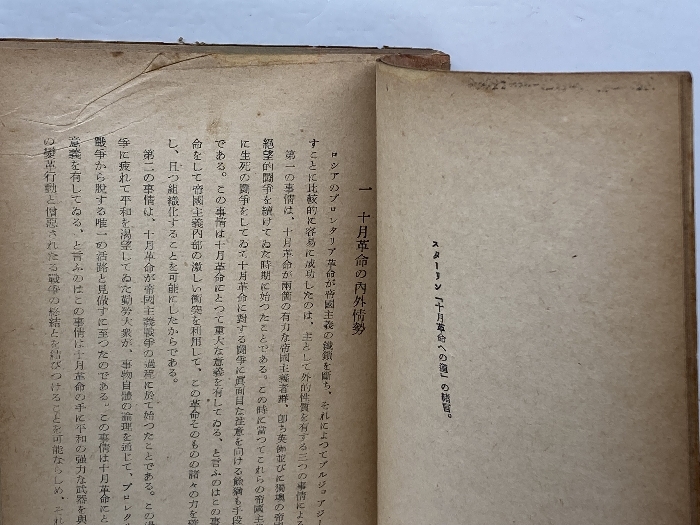 スターリン「十月革命への道」の緒言。
一 十月革命の內外情勢
ロシアのプロレタリア革命が帝國主義の鐵鎖を斷ち、それによつてブルジョアジー
すことに比較的に容易に成功したのは、主として外的性質を有する三つの事情による
第一の事情は、十月革命が兩個の有力な帝國主義者群、卽ち英佛並びに獨墺の帝
絕望的鬪爭を續けてゐた時期に始つたことである。この時に當つてこれらの帝國主
に生死の鬪爭をしてゐて十月革命に對する鬪爭に眞面目な注意を向ける餘猶も手段
である。この事情は十月革命にとつて重大な意義を有してゐる、と言ふのはこの事
命をして帝國主義內部の激しい衝突を利用して、この革命そのものの諸々の力を
し、且つ組織化することを可能にしたからである。
第二の事情は、十月革命が帝國主義戰爭の過程に於て始つたことである。この
爭に疲れて平和を渴望してゐた勤勞大衆が、事物自體の論理を通じて、プロレタ
戰爭から脫する唯一の活路と見做すに至つたのである。この事情は十月革命にと
意義を有してゐる、と言ふのはこの事情は十月革命の手に平和の强力な武器を與
の變革行動と憎惡されたる戰爭の終結とを結びつけることを可能ならしめ、それ